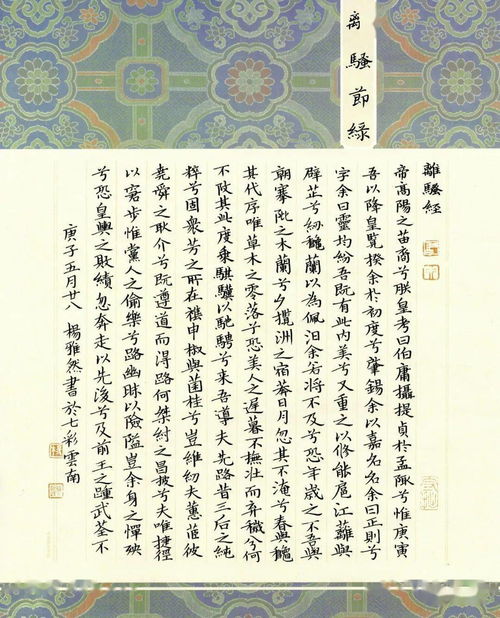 离騷節緑
離騷經
帝高陽之苗裔兮朕皇考曰伯庸攝提貞於孟陬兮惟庚寅
吾以降皇覧揆余於初度兮肇錫余以嘉名名余曰正則兮
字余曰靈均紛吾既有此内美兮又重之以脩能扈江蘺與
辟芷兮紉穐蘭以為佩汩余若將不及兮恐年歲之不吾與
朝搴阰之木蘭兮夕攬洲之宿莽日月忽其不淹兮春與穐
其代序唯草木之零落兮恐美人之遲暮不撫壯而弃穢兮何
不改其此度乘騏驥以馳騁兮来吾導夫先路昔三后之純
粹兮固衆芳之所在襍申椒與菌桂兮豈維紉夫蕙茝彼
堯舜之耿介兮既遵道而得路何桀紂之昌披兮夫唯捷徑
以窘步惟黨人之偷樂兮路幽昧以險隘豈余身之憚殃
兮恐皇輿之敗績忽奔走以先後兮及前王之踵武荃不
庚子五月廿八 楊雅然書於七彩雲南